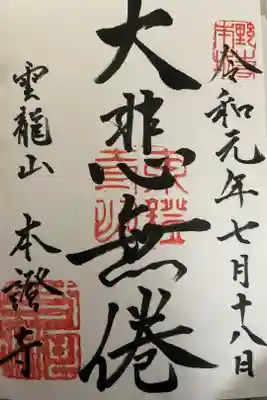 令和元年七月十八日
大悲無倦
雲龍山 本證寺